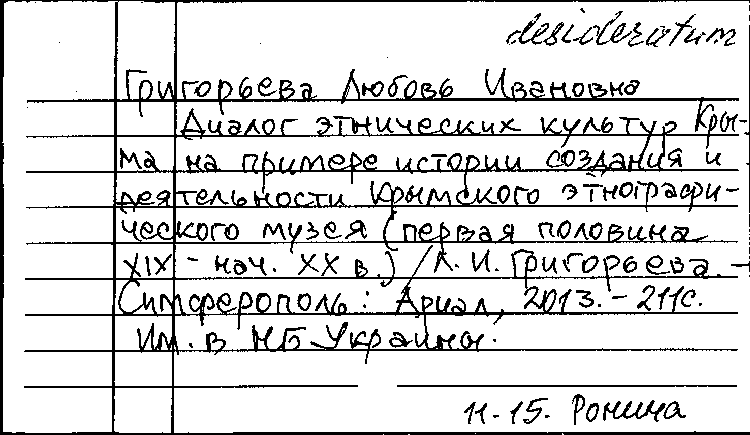 desideratum
Григорьева Любовь Ивановна
Диалог этнических культур Кры-
ма на примере истории создания и
деятельности Крымского этнографи-
ческого музея (первая половина
XIX - нач. XX в.) / Л. И. Григорьева. –
Симферополь: Ариал, 2013. – 211с.
Им. в НБ Украины.
11.15. Ронина